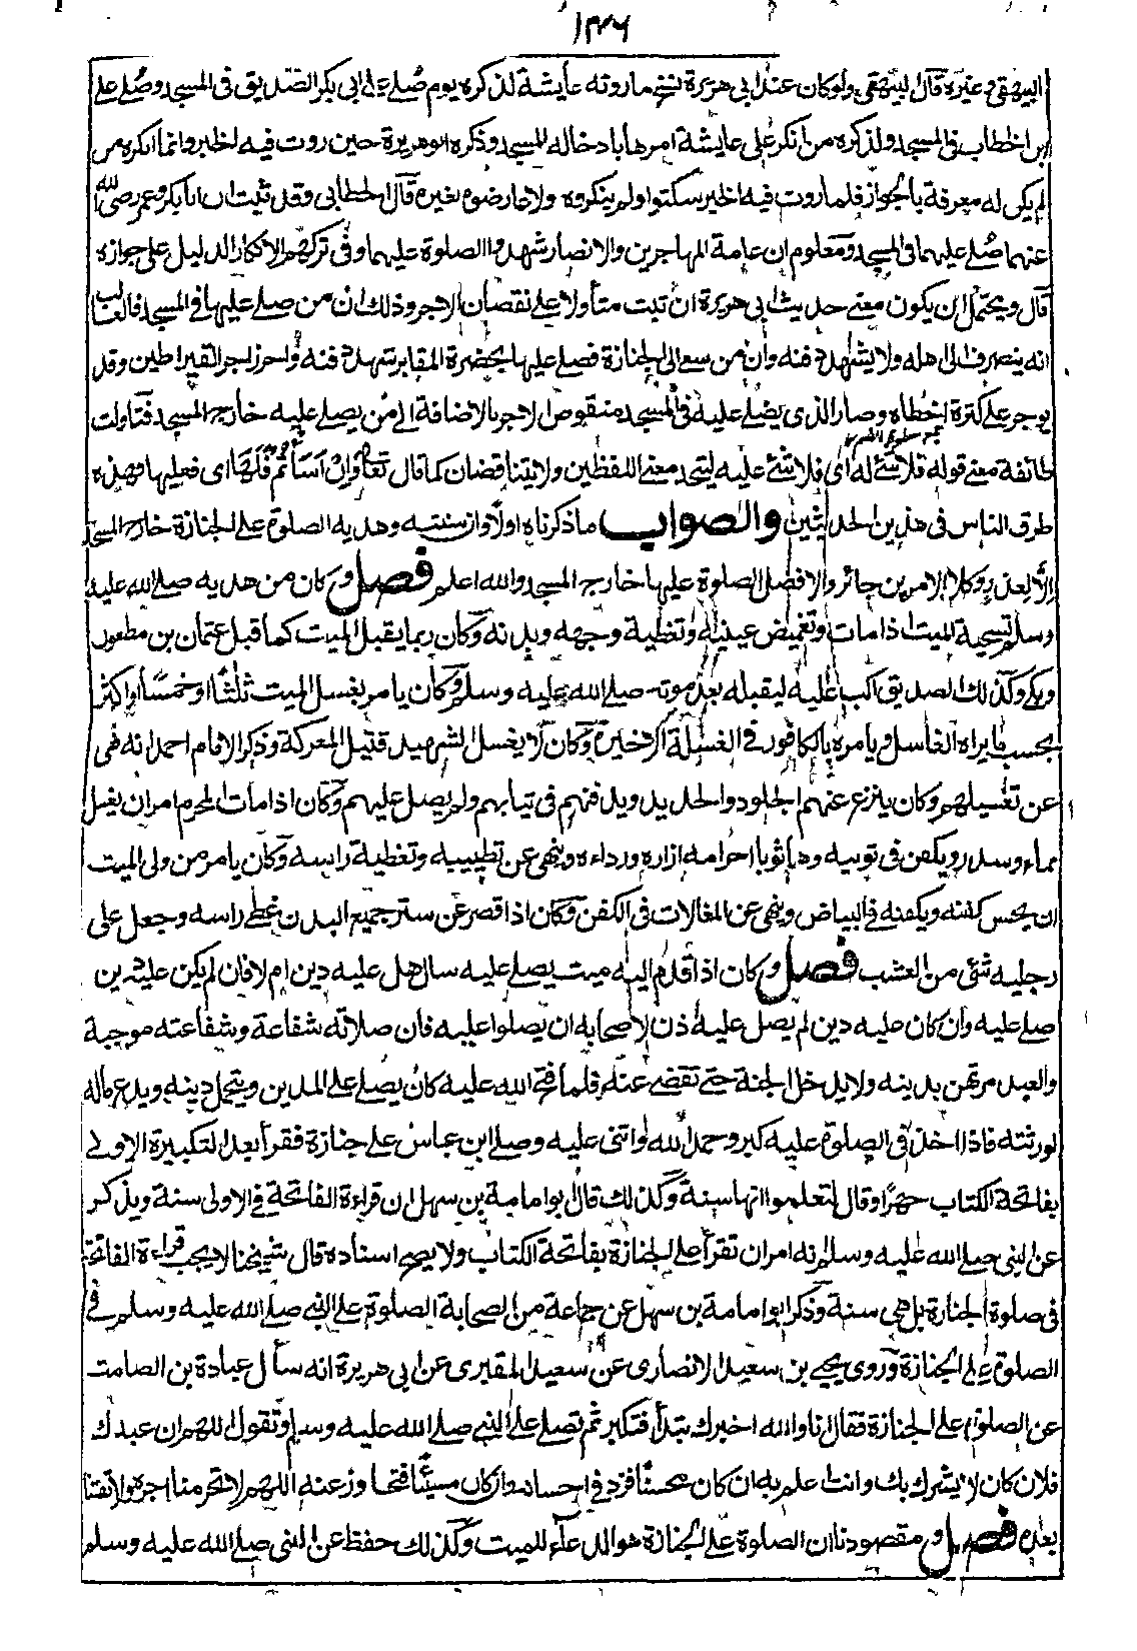 ١٣٦
البيهقي وغيره قال البيهقي ولو كان عند ابي هريرة نسخ ما روته عايشة لذكره يوم صُلے علی ابی بکر الصديق فی المسجد وصُلے علے
ابن الخطاب فی المسجد ولذكره من انكر علی عايشة امرها بادخاله المسجد وذكره ابو هريرة حين روت فيه الخبر وانما انكره من
لم يكن له معرفة بالجواز فلما روت فيه الخبر سكتوا ولم ينكروه ولا عارضوه بغيره قال الخطابی وقد ثبت ان ابا بكر وعمر رضی الله
عنهما صُلے عليهما فی المسجد ومعلوم ان عامة المهاجرين والانصار شهدوا الصلوة عليهما وفی تركهم الانكار الدليل علی جوازه
قال ويحتمل ان يكون معنے حديث ابی هريرة ان ثبت متأولا علے نقصان الاجر وذلك ان من صلے عليها فی المسجد فالغالب
انه ينصرف الی اهله ولا يشهد دفنه وان من سعے الی الجنازة فصلے عليها بحضرة المقابر شهد دفنه واحرز اجر القيراطين وقد
يوجر علے كثرة خُطاه وصار الذی يصلے عليه فی المسجد منقوص الاجر بالاضافة الے من يصلے عليه خارج المسجد فتاولت
طائفة معنے قوله فلا شئے له ای فلا شئے عليه ليتحد معنے اللفظين ولا يتناقضان كما قال تعالٰی وَاِنْ اَسَأْتُمْ فَلَهَا ای فعليها فهذه
طرق الناس فی هذين الحديثين والصواب ما ذكرناه اولًا وان سنته وهديه الصلوة علے الجنازة خارج المسجد
اِلَّا لِعذرٍ وكلا الامرين جائز والافضل الصلوة عليها خارج المسجد والله اعلم فصل وكان من هديه صلے الله عليه
وسلم تسجية الميت اذا مات وتغميض عينيه وتغطية وجهه وبدنه وكان ربما يقبل الميت كما قبل عثمان بن مظعون
وبكی وكذلك الصديق اكب عليه ليقبله بعد موته صلے الله عليه وسلم وكان يامر بغسل الميت ثلثًا او خمسًا او اكثر
بحسب ما يراه الغاسل ويامره بالكافور فی الغسلة الاخيرة وكان لا يغسل الشهيد قتيل المعركة وذكر الامام احمد انه نهی
عن تغسيلهم وكان ينزع عنهم الجلود والحديد ويدفنهم فی ثيابهم ولم يصل عليهم وكان اذا مات المحرم امر ان يغسل
بماء وسدر ويكفن فی ثوبيه وهما ثوبا احرامه ازاره ورداءه وينهی عن تطييبه وتغطية راسه وكان يامر من ولی الميت
ان يحسن كفنه ويكفنه فی البياض وينهی عن المغالات فی الكفن وكان اذا قصر عن ستر جميع البدن غطے راسه وجعل علی
رجليه شئی من العشب فصل وكان اذا قدم اليه ميت يصلے عليه سال هل عليه دين ام لا فان لم يكن عليه دين
صلے عليه وان كان عليه دين لم يصل عليه اذن لاصحابه ان يصلوا عليه فان صلاته شفاعة وشفاعته موجبة
والعبد مرتهن بدينه ولا يدخل الجنة حتے تقضے عنه فلما فتح الله عليه كان يصلے علے المدين ويتحمل دينه ويدع ماله
لورثته فاذا اخذ فی الصلوة عليه كبر وحمد الله واثنی عليه وصلے ابن عباس علے جنازة فقرأ بعد التكبيرة الاولے
بفاتحة الكتاب جهرًا وقال لتعلموا انها سنة وكذلك قال ابو امامة بن سهل ان قراءة الفاتحة فی الاولی سنة ويذكر
عن النبی صلے الله عليه وسلم انه امر ان تقرأ علے الجنازة بفاتحة الكتاب ولا يصح اسناده قال شيخنا لا يجب قراءة الفاتحة
فی صلوة الجنازة بل هی سنة وذكر ابو امامة بن سهل عن جماعة من الصحابة الصلوة علے النبی صلے الله عليه وسلم فی
الصلوة علے الجنازة وروی يحيے بن سعيد الانصاری عن سعيد المقبری عن ابی هريرة انه سأل عبادة بن الصامت
عن الصلوة علی الجنازة فقال انا والله اخبرك تبدأ فتكبر ثم تصلے علے النبی صلے الله عليه وسلم وتقول اللهم ان عبدك
فلان كان لا يشرك بك وانت اعلم به ان كان محسنًا فزد فی احسانه وان كان مسيئًا فتجاوز عنه اللهم لا تحرمنا اجره ولا تضلنا
بعده فصل ومقصودنا ان الصلوة علے الجنازة هو الدعآء للميت وكذلك حفظ عن النبی صلے الله عليه وسلم